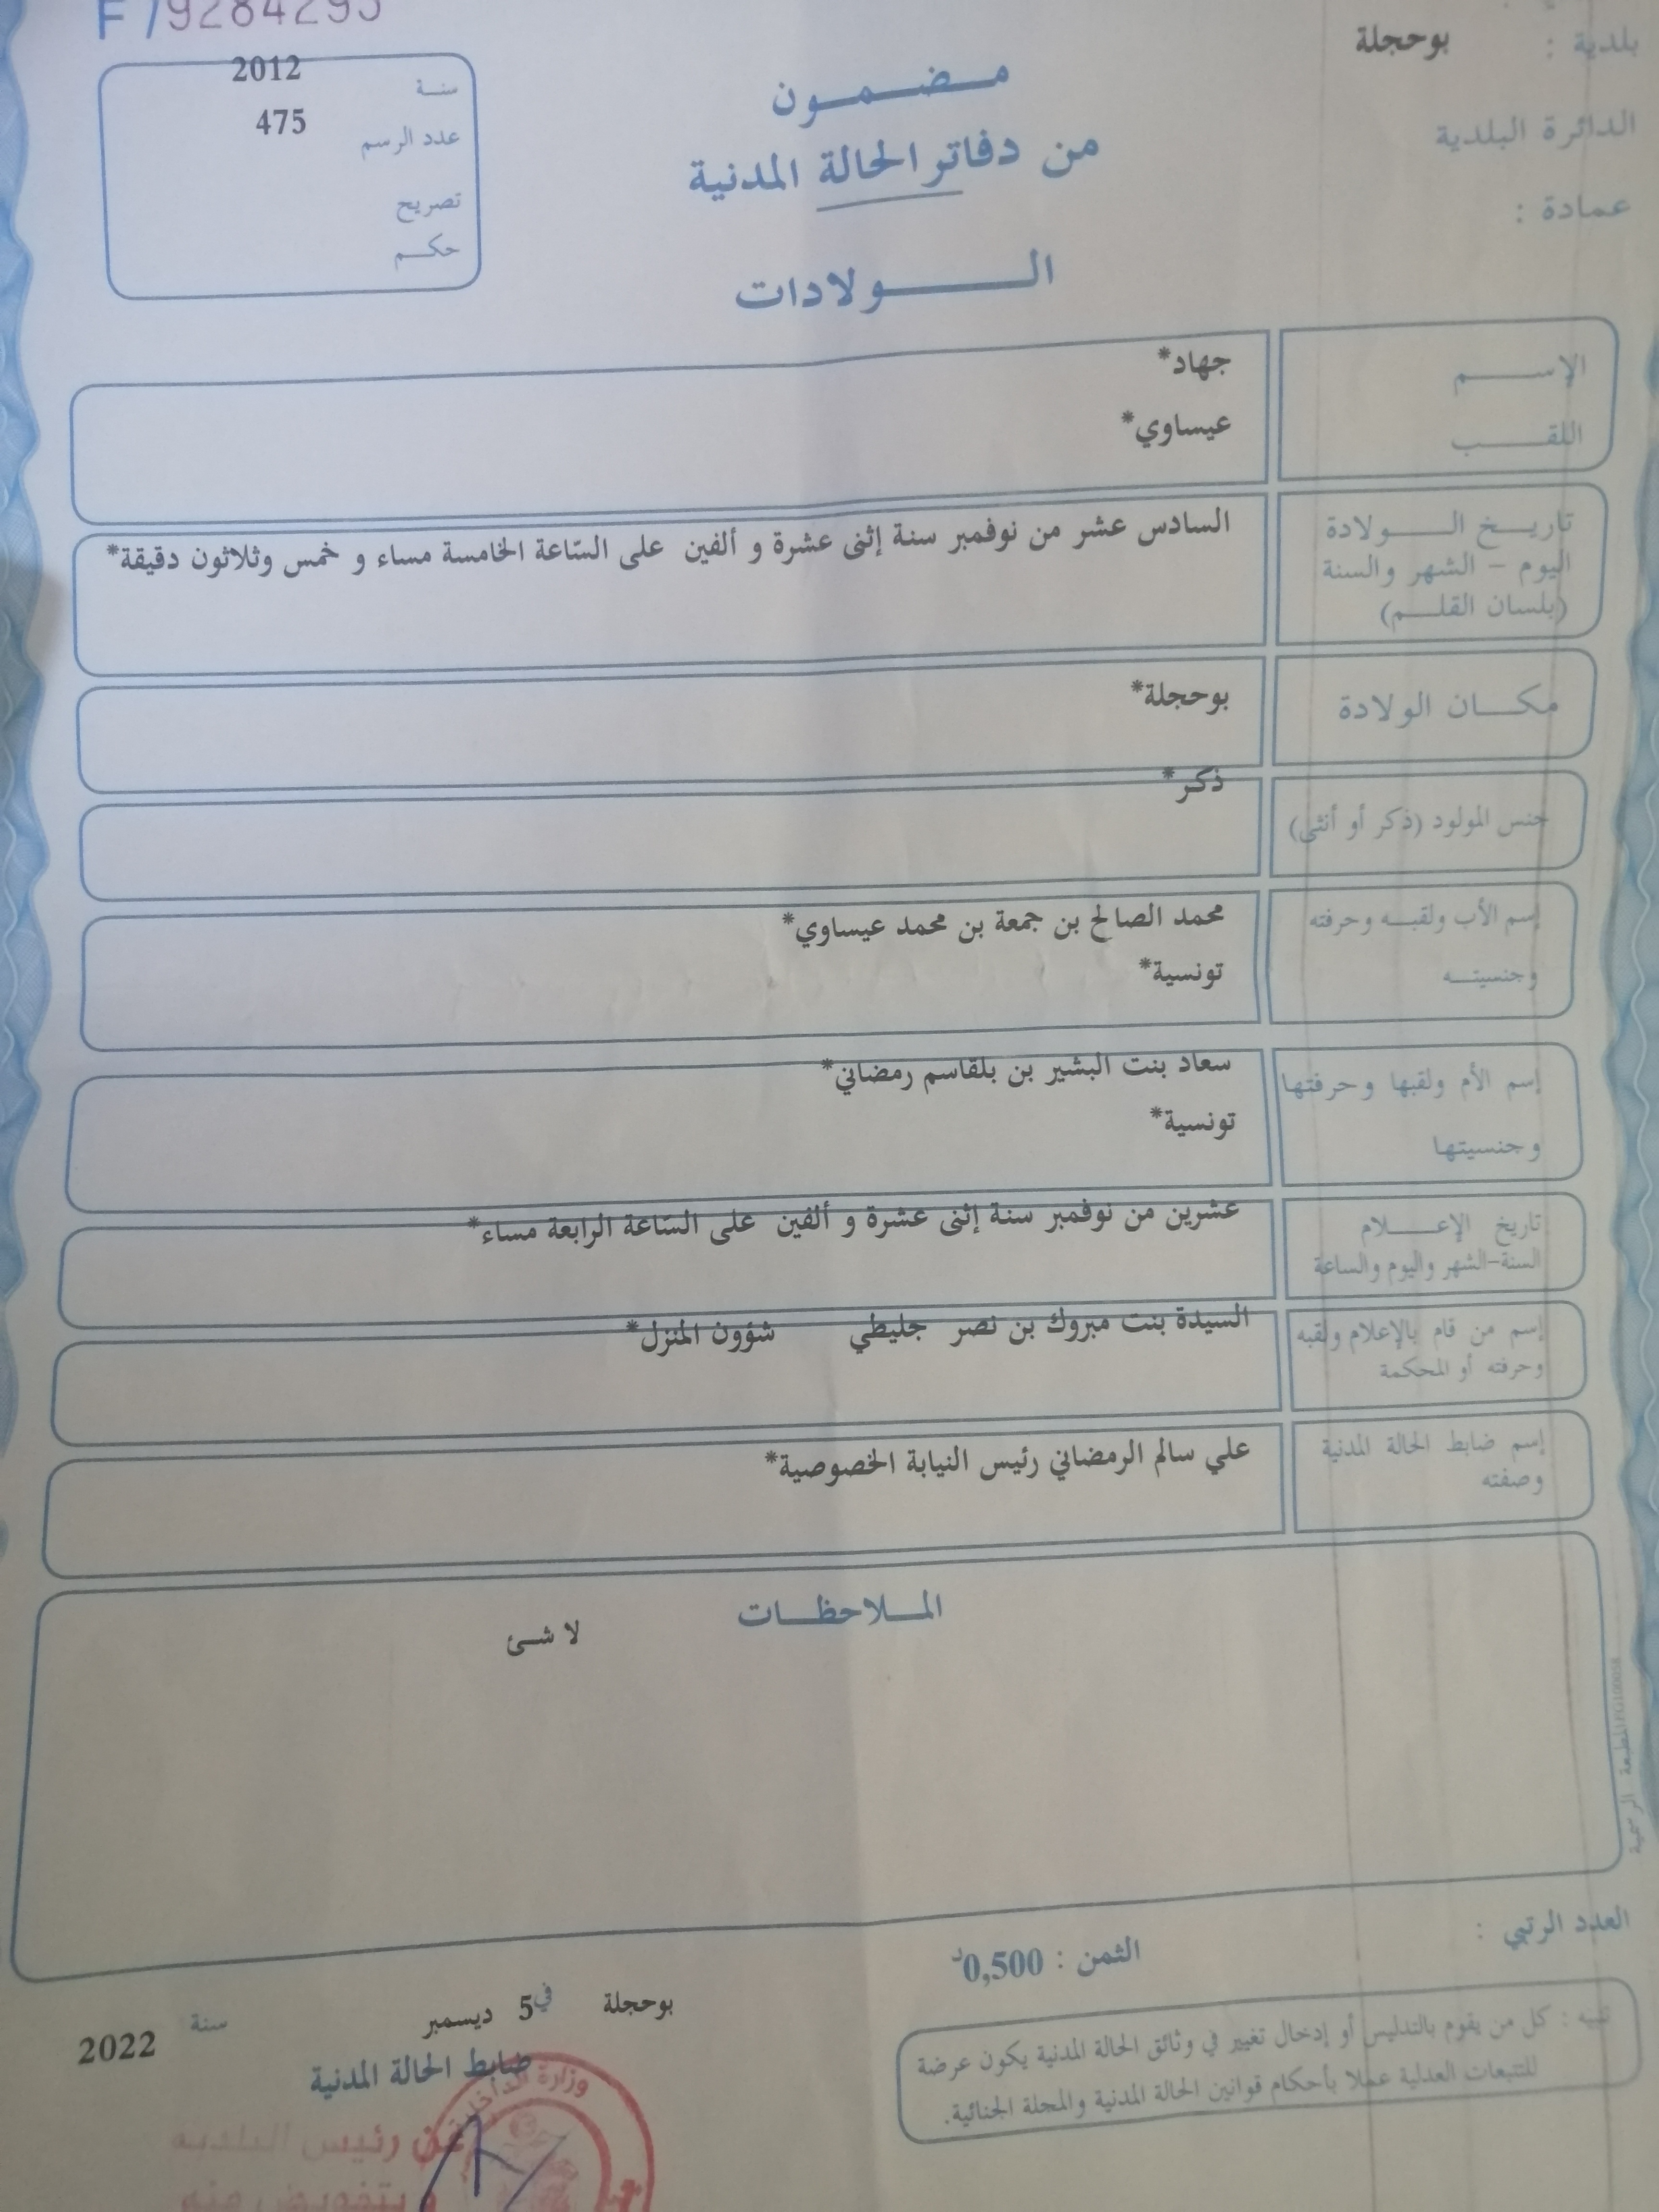 بلدية : بوحجلة
الدائرة البلدية
عمادة :
مضمون
من دفاتر الحالة المدنية
الولادات
سنة 2012
عدد الرسم 475
تصريح
حكم
الإسم جهاد*
اللقب عيساوي*
تاريخ الولادة
اليوم - الشهر والسنة
(بلسان القلم)
السادس عشر من نوفمبر سنة إثنى عشرة و ألفين على السّاعة الخامسة مساء و خمس وثلاثون دقيقة*
مكان الولادة بوحجلة*
جنس المولود (ذكر أو أنثى) ذكر*
إسم الأب ولقبه وحرفته
وجنسيته
محمد الصالح بن جمعة بن محمد عيساوي*
تونسية*
إسم الأم ولقبها وحرفتها
وجنسيتها
سعاد بنت البشير بن بلقاسم رمضاني*
تونسية*
تاريخ الإعلام
السنة-الشهر واليوم والساعة
عشرين من نوفمبر سنة إثنى عشرة و ألفين على السّاعة الرابعة مساء*
إسم من قام بالإعلام ولقبه
وحرفته أو المحكمة
السيدة بنت مبروك بن نصر جليطي شؤون المنزل*
إسم ضابط الحالة المدنية
وصفته
علي سالم الرمضاني رئيس النيابة الخصوصية*
الملاحظات
لا شئ
المطبعة الرسمية
العدد الرتبي :
الثمن : 0,500د
تنبيه : كل من يقوم بالتدليس أو إدخال تغيير في وثائق الحالة المدنية يكون عرضة
للتتبعات العدلية عملا بأحكام قوانين الحالة المدنية والمجلة الجنائية.
بوحجلة في 5 ديسمبر سنة 2022
ضابط الحالة المدنية
وزارة الداخلية
عن رئيس البلدية
وبتفويض منه